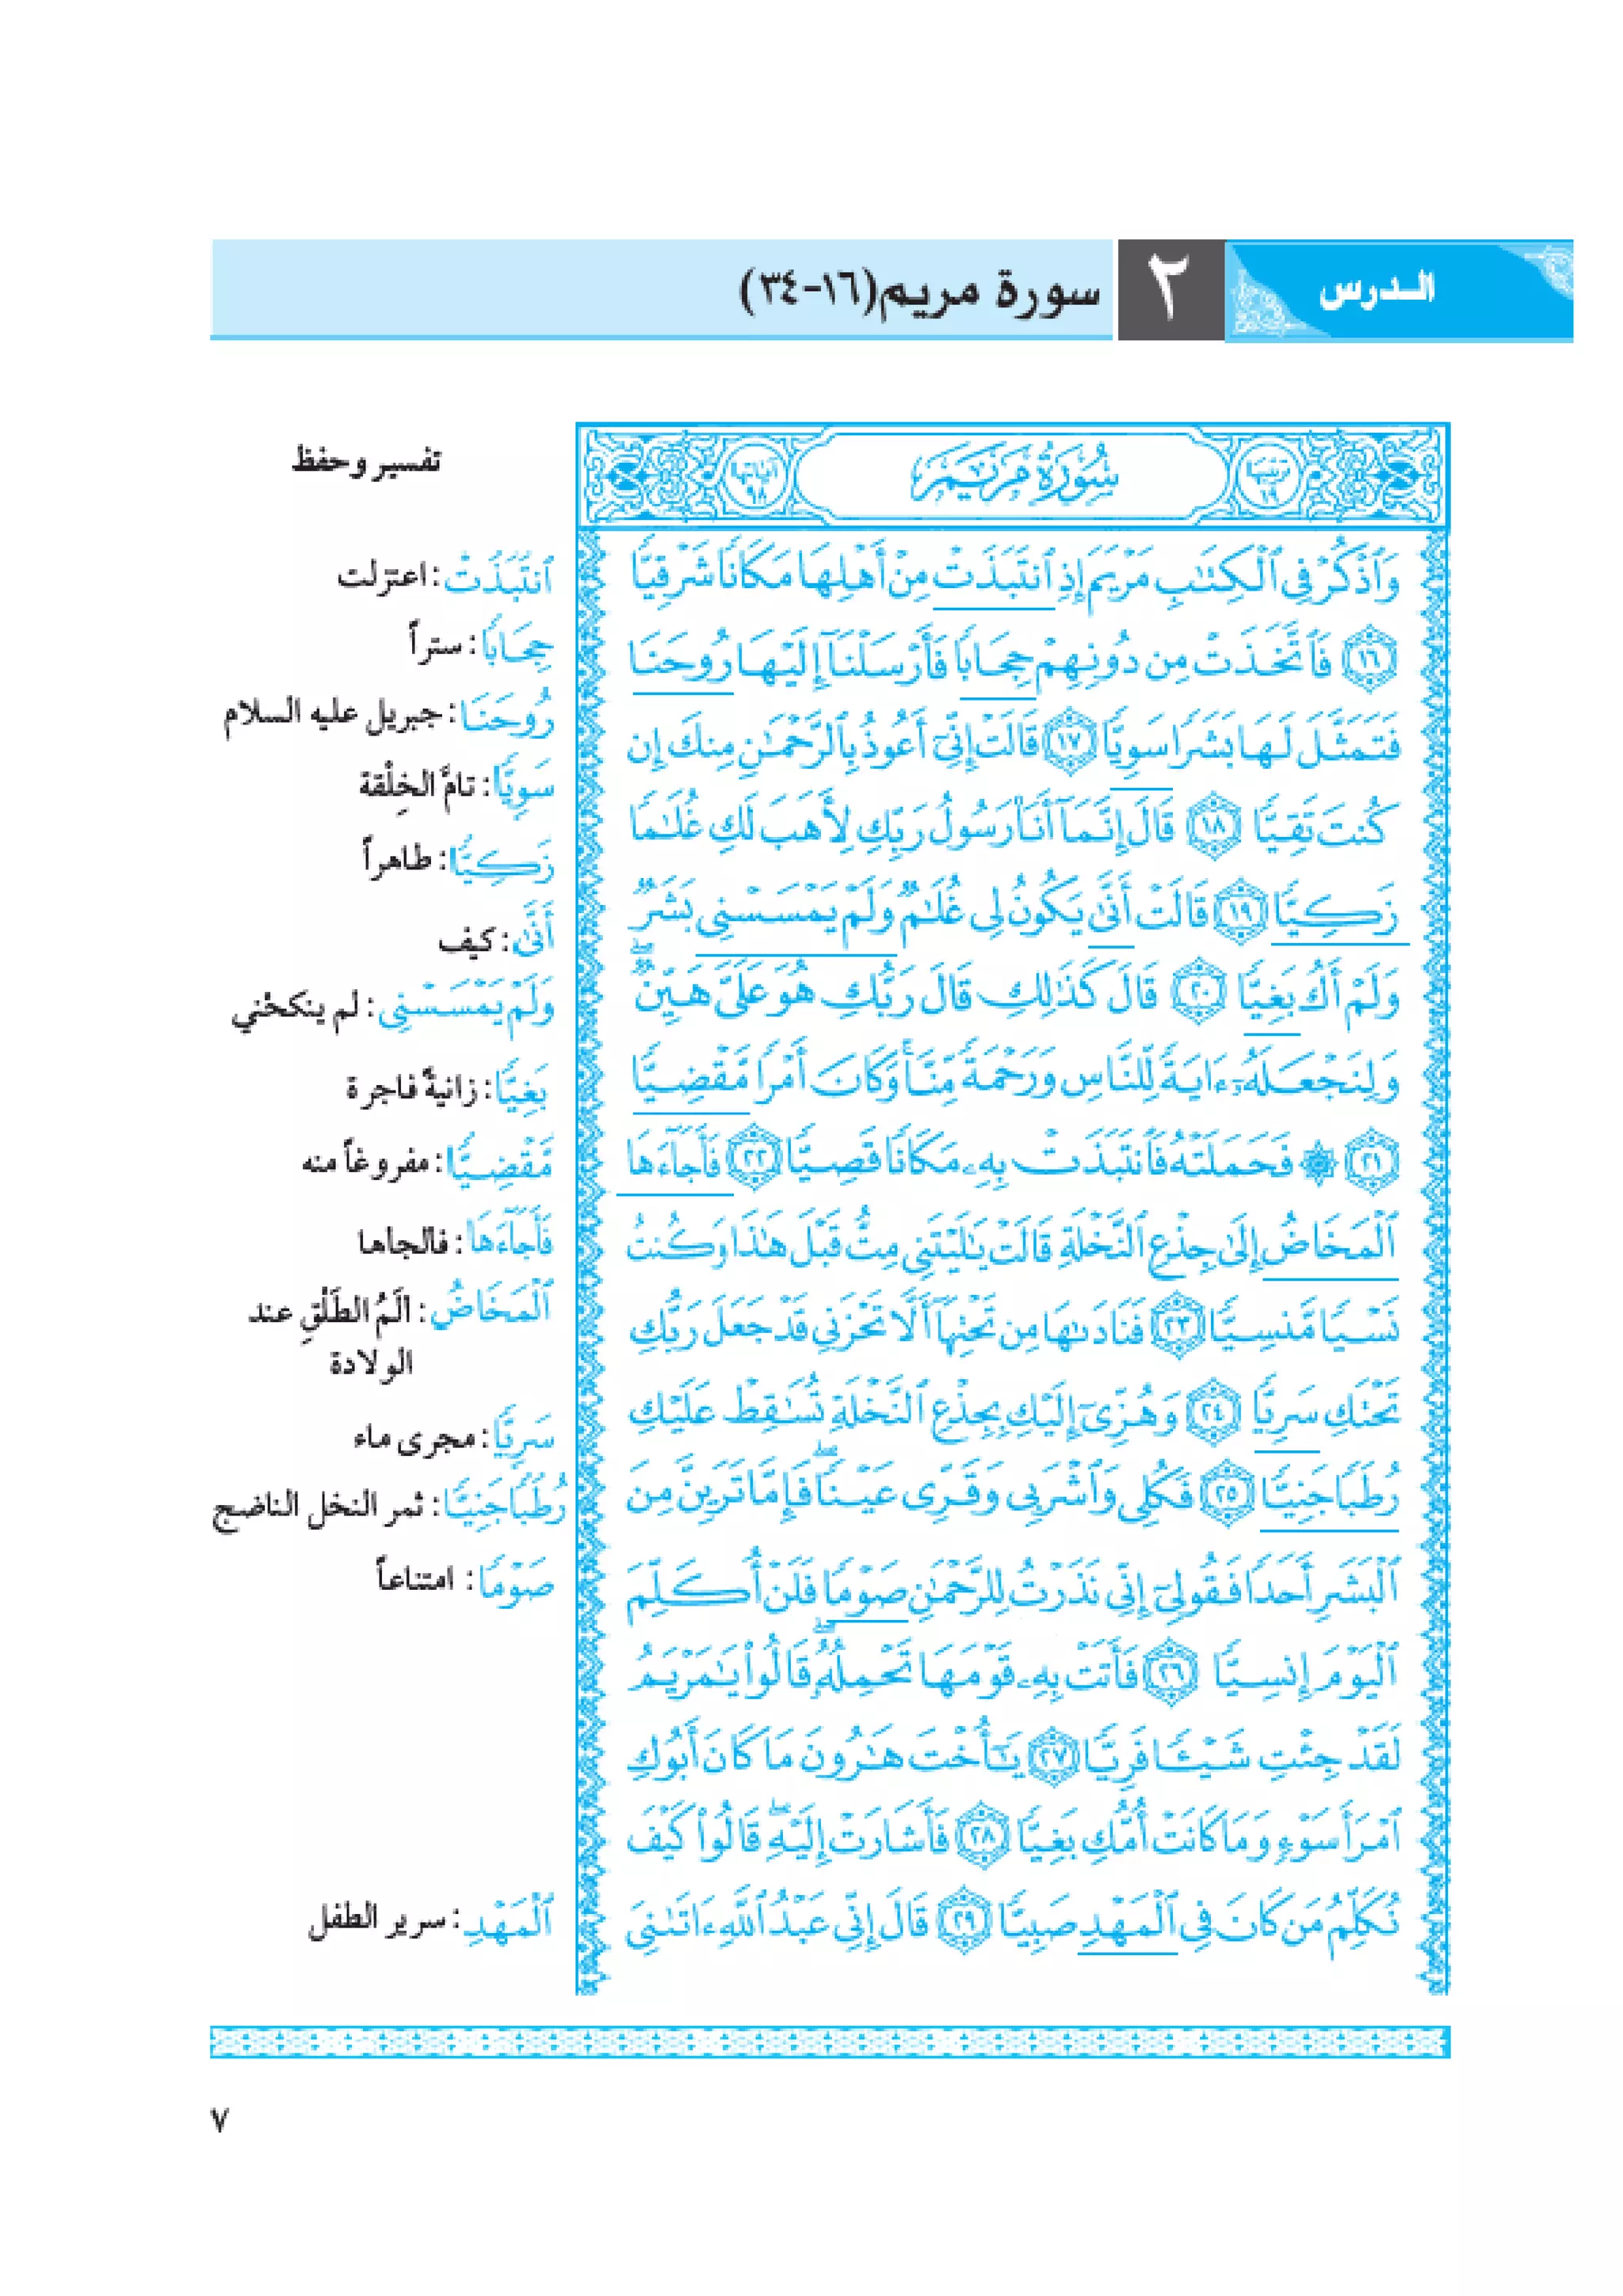 الـدرس ٢ سورة مريم(١٦-٣٤)
تفسير وحفظ
ترتيبها ١٩ سُورَةُ مَرْيَمَ آياتها ٩٨
وَٱذْكُرْ فِى ٱلْكِتَٰبِ مَرْيَمَ إِذِ ٱنتَبَذَتْ مِنْ أَهْلِهَا مَكَانًا شَرْقِيًّا
١٦ فَٱتَّخَذَتْ مِن دُونِهِمْ حِجَابًا فَأَرْسَلْنَآ إِلَيْهَا رُوحَنَا
فَتَمَثَّلَ لَهَا بَشَرًا سَوِيًّا ١٧ قَالَتْ إِنِّىٓ أَعُوذُ بِٱلرَّحْمَٰنِ مِنكَ إِن
كُنتَ تَقِيًّا ١٨ قَالَ إِنَّمَآ أَنَا۠ رَسُولُ رَبِّكِ لِأَهَبَ لَكِ غُلَٰمًا
زَكِيًّا ١٩ قَالَتْ أَنَّىٰ يَكُونُ لِى غُلَٰمٌ وَلَمْ يَمْسَسْنِى بَشَرٌ
وَلَمْ أَكُ بَغِيًّا ٢٠ قَالَ كَذَٰلِكِ قَالَ رَبُّكِ هُوَ عَلَىَّ هَيِّنٌ ۖ
وَلِنَجْعَلَهُۥٓ ءَايَةً لِّلنَّاسِ وَرَحْمَةً مِّنَّا ۚ وَكَانَ أَمْرًا مَّقْضِيًّا
٢١ ۞ فَحَمَلَتْهُ فَٱنتَبَذَتْ بِهِۦ مَكَانًا قَصِيًّا ٢٢ فَأَجَآءَهَا
ٱلْمَخَاضُ إِلَىٰ جِذْعِ ٱلنَّخْلَةِ قَالَتْ يَٰلَيْتَنِى مِتُّ قَبْلَ هَٰذَا وَكُنتُ
نَسْيًا مَّنسِيًّا ٢٣ فَنَادَىٰهَا مِن تَحْتِهَآ أَلَّا تَحْزَنِى قَدْ جَعَلَ رَبُّكِ
تَحْتَكِ سَرِيًّا ٢٤ وَهُزِّىٓ إِلَيْكِ بِجِذْعِ ٱلنَّخْلَةِ تُسَٰقِطْ عَلَيْكِ
رُطَبًا جَنِيًّا ٢٥ فَكُلِى وَٱشْرَبِى وَقَرِّى عَيْنًا ۖ فَإِمَّا تَرَيِنَّ مِنَ
ٱلْبَشَرِ أَحَدًا فَقُولِىٓ إِنِّى نَذَرْتُ لِلرَّحْمَٰنِ صَوْمًا فَلَنْ أُكَلِّمَ
ٱلْيَوْمَ إِنسِيًّا ٢٦ فَأَتَتْ بِهِۦ قَوْمَهَا تَحْمِلُهُۥ ۖ قَالُوا۟ يَٰمَرْيَمُ
لَقَدْ جِئْتِ شَيْـًٔا فَرِيًّا ٢٧ يَٰٓأُخْتَ هَٰرُونَ مَا كَانَ أَبُوكِ
ٱمْرَأَ سَوْءٍ وَمَا كَانَتْ أُمُّكِ بَغِيًّا ٢٨ فَأَشَارَتْ إِلَيْهِ ۖ قَالُوا۟ كَيْفَ
نُكَلِّمُ مَن كَانَ فِى ٱلْمَهْدِ صَبِيًّا ٢٩ قَالَ إِنِّى عَبْدُ ٱللَّهِ ءَاتَىٰنِىَ
ٱنتَبَذَتْ : اعتزلت
حِجَابًا : ستراً
رُوحَنَا : جبريل عليه السلام
سَوِيًّا : تامَّ الخِلْقة
زَكِيًّا : طاهراً
أَنَّىٰ : كيف
وَلَمْ يَمْسَسْنِى : لم ينكحْني
بَغِيًّا : زانيةً فاجرة
مَّقْضِيًّا : مفروغاً منه
فَأَجَآءَهَا : فألجاها
ٱلْمَخَاضُ : ألَمُ الطَلْقِ عند
الولادة
سَرِيًّا : مجرى ماء
رُطَبًا جَنِيًّا : ثمر النخل الناضج
صَوْمًا : امتناعاً
ٱلْمَهْدِ : سرير الطفل
٧